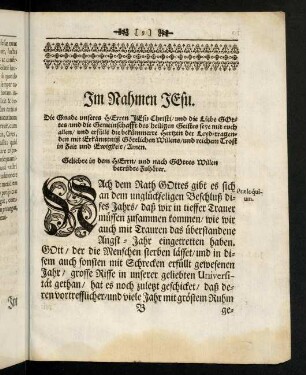 [ 1 ]
Im Nahmen JEsu.
Die Gnade unseres HErren JEsu Christi/ und die Liebe GOt-
tes und die Gemeinschafft des heiligen Geistes seye mit euch
allen/ und erfülle die bekümmerte Hertzen der Leydtragen-
den mit Erkänntnüß Göttlichen Willens/ und reichem Trost
in Zeit und Ewigkeit/ Amen.
Geliebte in dem HErrn/ und nach GOttes Willen
betrübte Zuhörer.
NAch dem Rath GOttes gibt es sich
an dem unglückseligen Beschluß di-
ses Jahrs/ daß wir in tieffer Trauer
müssen zusammen kommen/ wie wir
auch mit Trauren das überstandene
Angst-Jahr eingetretten haben.
GOtt/ der die Menschen sterben lässet/ und in di-
sem auch sonsten mit Schrecken erfüllt gewesenen
Jahr/ grosse Risse in unserer geliebten Universi-
tät gethan/ hat es noch zuletzt geschicket/ daß de-
ren vortrefflicher/ und viele Jahr mit gröstem Ruhm
Proloqui-
um.
B
ge-